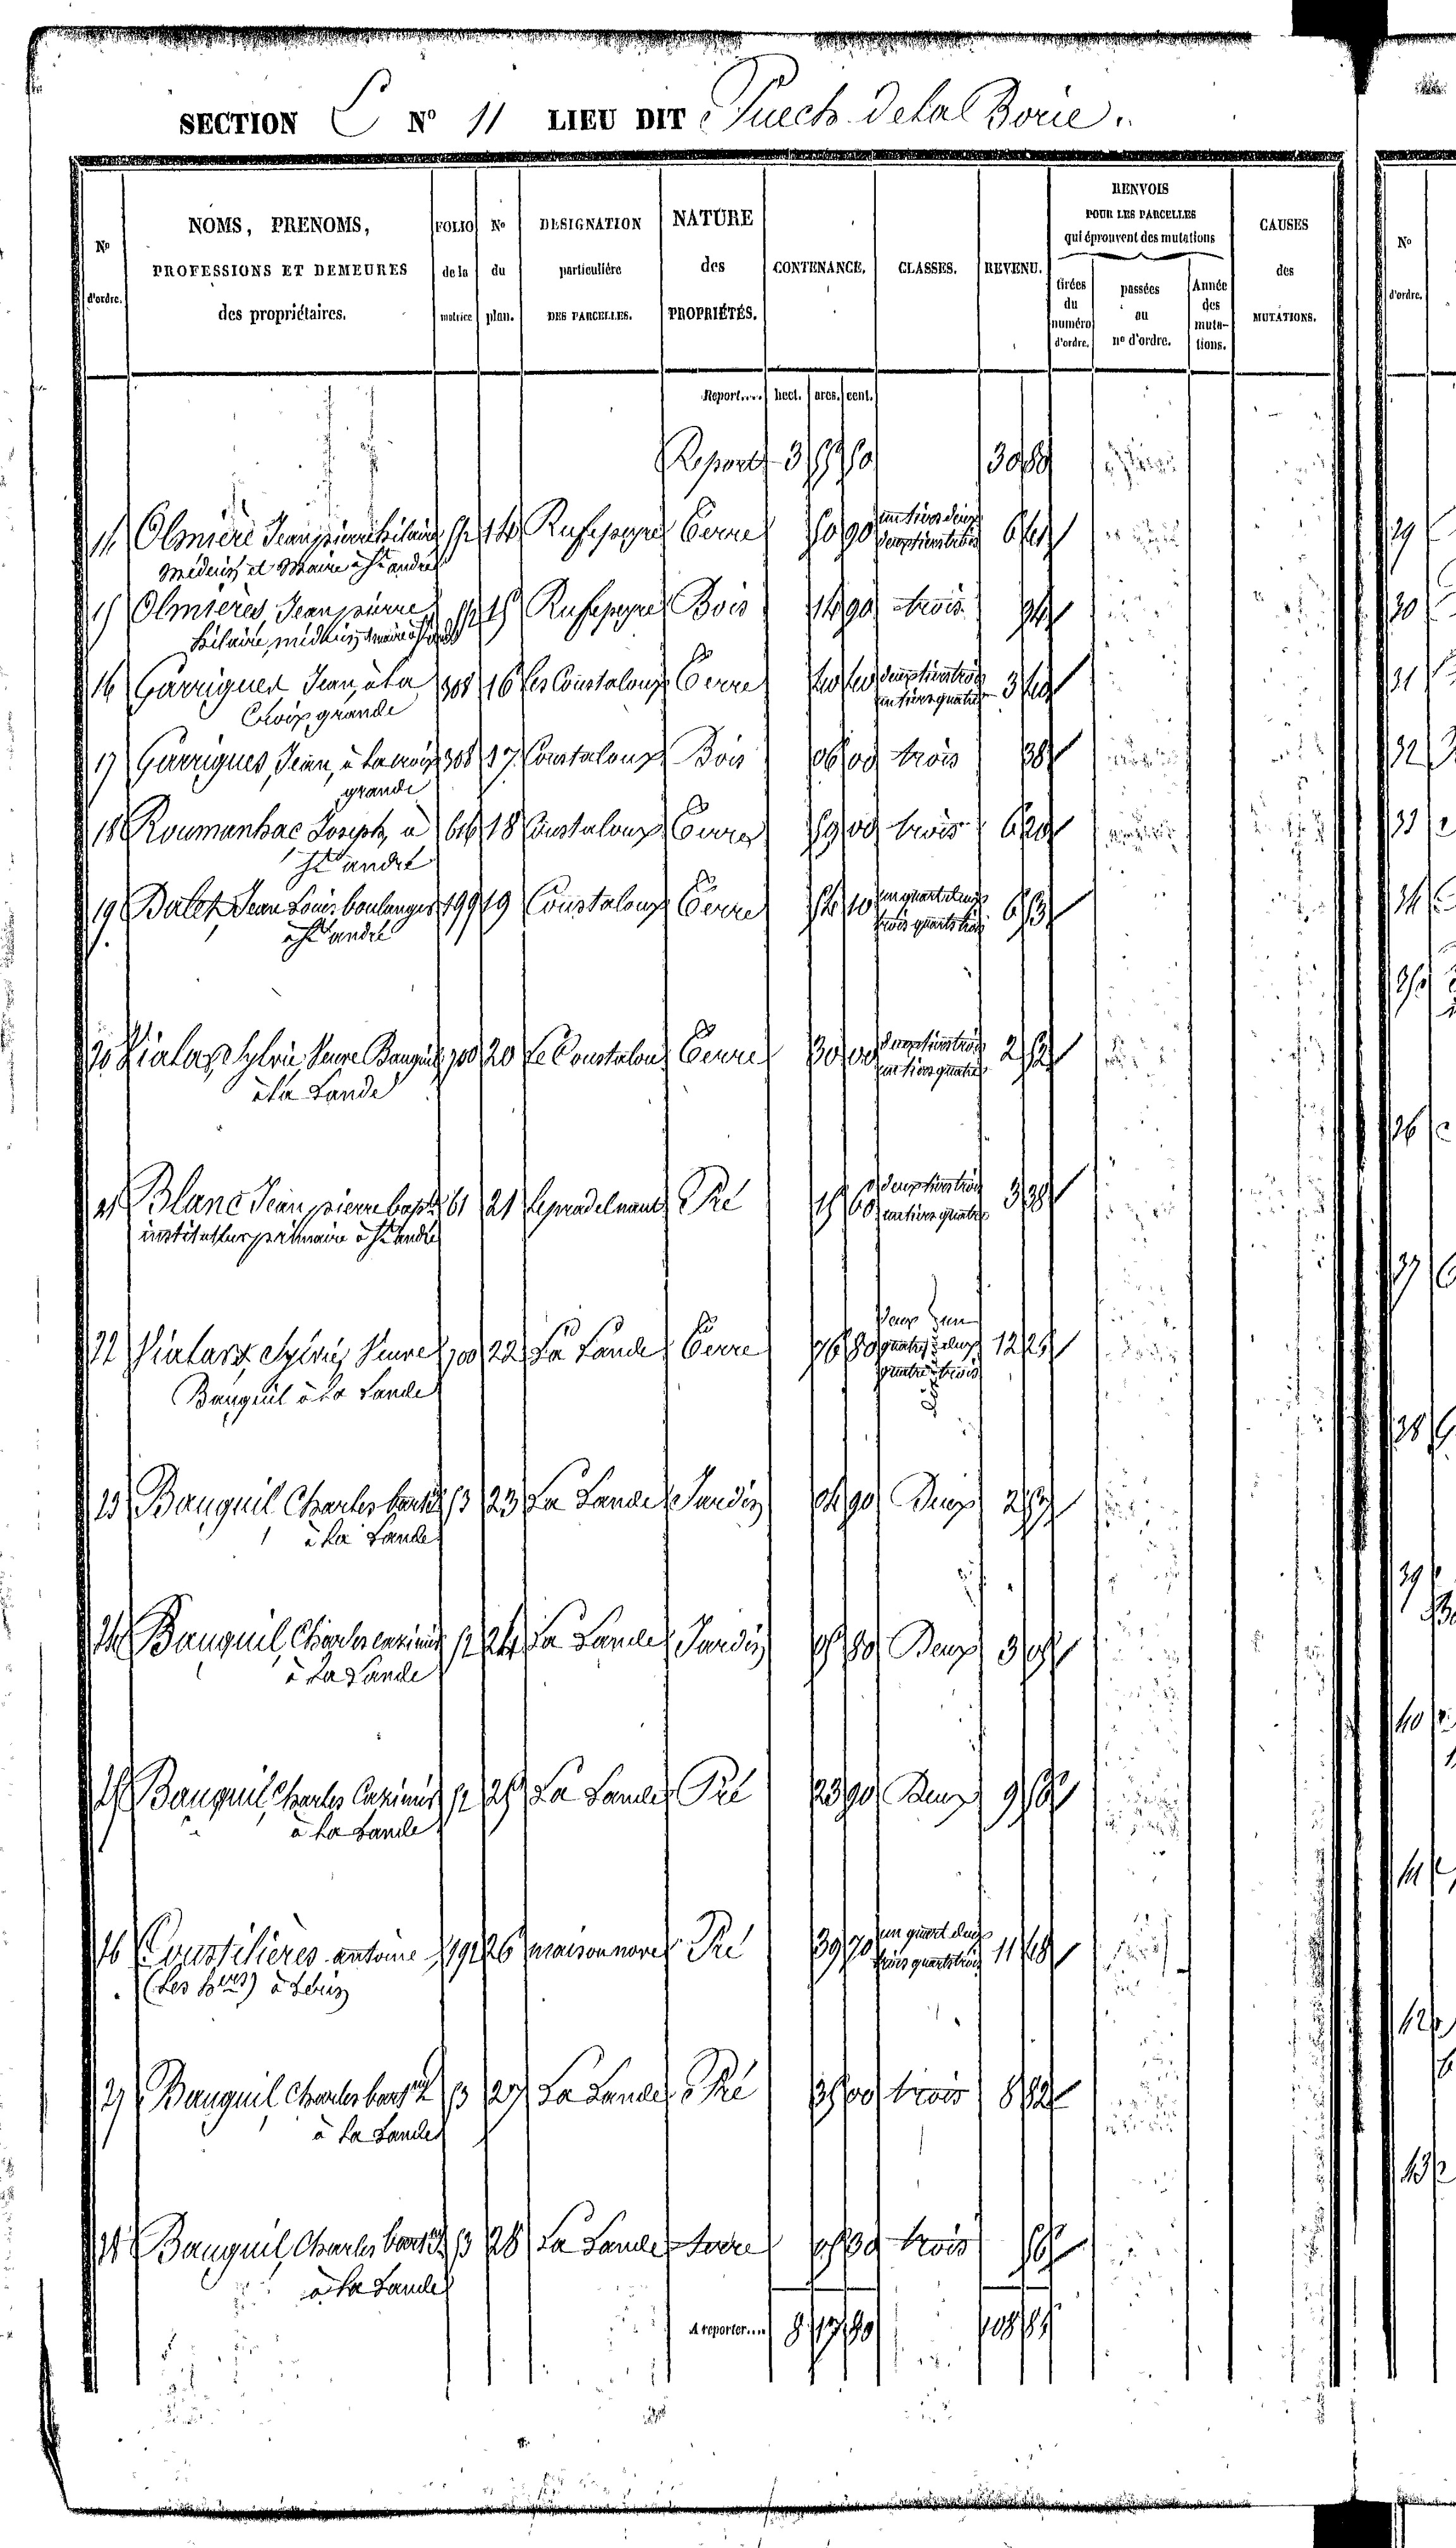 SECTION C No 11 LIEU DIT Puech de la Borie.
No d'ordre.
NOMS, PRENOMS, PROFESSIONS ET DEMEURES des propriétaires.
FOLIO de la matrice
No du plan.
DESIGNATION particulière DES PARCELLES.
NATURE des PROPRIÉTÉS.
CONTENANCE.
CLASSES.
REVENU.
RENVOIS POUR LES PARCELLES qui éprouvent des mutations
tirées du numéro d'ordre.
passées au no d'ordre.
Année des mutations.
CAUSES des MUTATIONS.
No d'ordre.
Report.... hect. ares. cent.
Report 3
14 Olmière Jean pierre hilaire 14 Rufepeyre Terre 90 un tiers deux
médecin et Maire à St andré deux tiers trois
15 Olmières, Jean pierre 15 Rufepeyre Bois 14 90 trois
hilaire, médecin
16 Garrigues Jean, à la 308 16 Les Coustaloux Terre deux tiers trois
Croix grande un tiers quatre
17 Garrigues, Jean, à la croix 308 17 Coustaloux Bois 06 00 trois 38
grande
18 Roumanhac Joseph, à 616 18 Coustaloux Terre 59 00 trois 6 20
St andré
19 Batet, Jean Louis boulanger 199 19 Coustaloux Terre 54 10 un quart deux 6 53
à St andré trois quarts trois
20 Vialas, Sylvie, Veuve Bauguil 700 20 Le Coustalou Terre 30 00 deux tiers trois 2 52
à la Lande un tiers quatre
21 Blanc Jean pierre bapte 61 21 Lepradelnaut Pré 15 60 deux tiers trois 3 38
instituteur primaire à St andré un tiers quatre
22 Sylvie, Veuve 700 22 La Lande Terre 76 80 12 25
Bauguil à la Lande
23 Bauguil Charles 53 23 La Lande Jardin 04 90 Deux 2 57
à la Lande
24 Bauguil, Charles casimir 52 24 La Lande Jardin 05 80 Deux 3 05
à la Lande
25 Bauguil, Charles Casimir 52 25 La Lande Pré 23 90 Deux 9
à la Lande
26 Coustilières antoine 192 26 maison nove Pré 39 70 un quart deux 11 48
(Les hers) à Lérin trois quarts trois
27 Bauguil, Charles 53 27 La Lande Pré 35 00 trois 8 82
à la Lande
28 Bauguil, Charles 53 28 La Lande terre 05 30 trois 56
à la Lande
A reporter.... 8 17 80 108 85
29
30
31
32
33
34
35
36
37
38
39
40
41
42
43